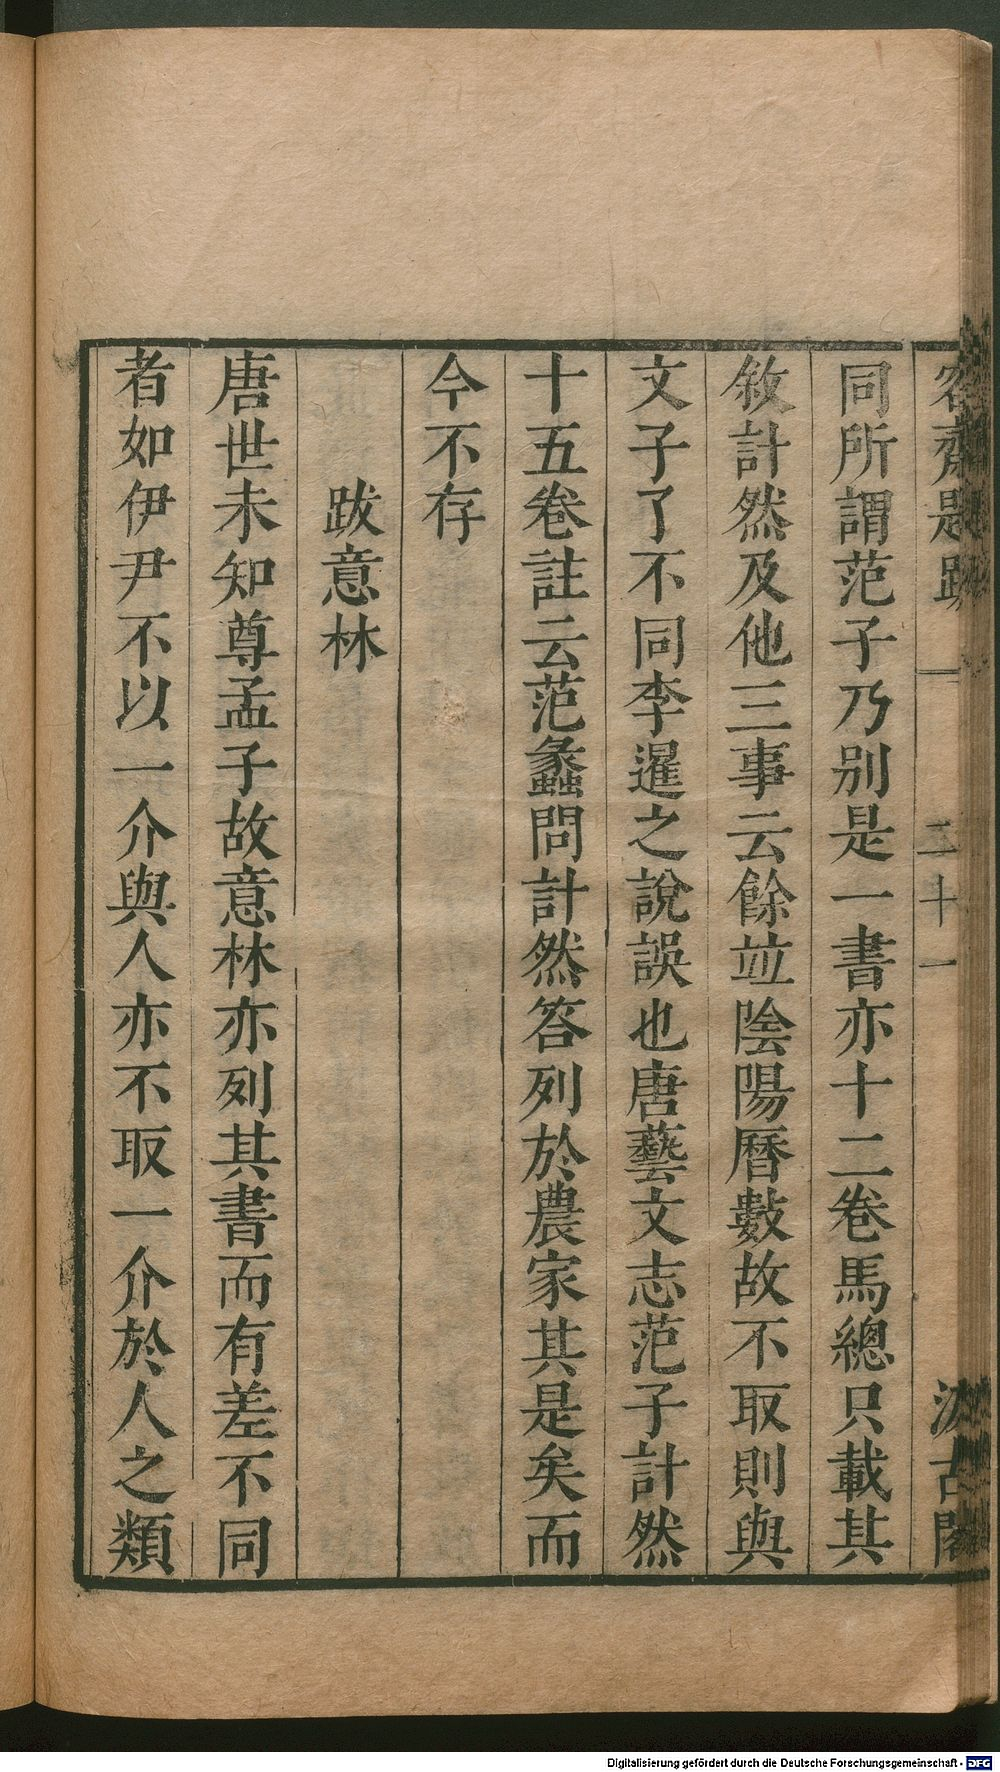 容齋題跋 一 二十一 汲古閣
同所謂范子乃別是一書亦十二卷馬總只載其
敘計然及他三事云餘竝陰陽曆數故不取則與
文子了不同李暹之說誤也唐藝文志范子計然
十五卷註云范蠡問計然答列於農家其是矣而
今不存
跋意林
唐世未知尊孟子故意林亦列其書而有差不同
者如伊尹不以一介與人亦不取一介於人之類
Digitalisierung gefördert durch die Deutsche Forschungsgemeinschaft - DFG